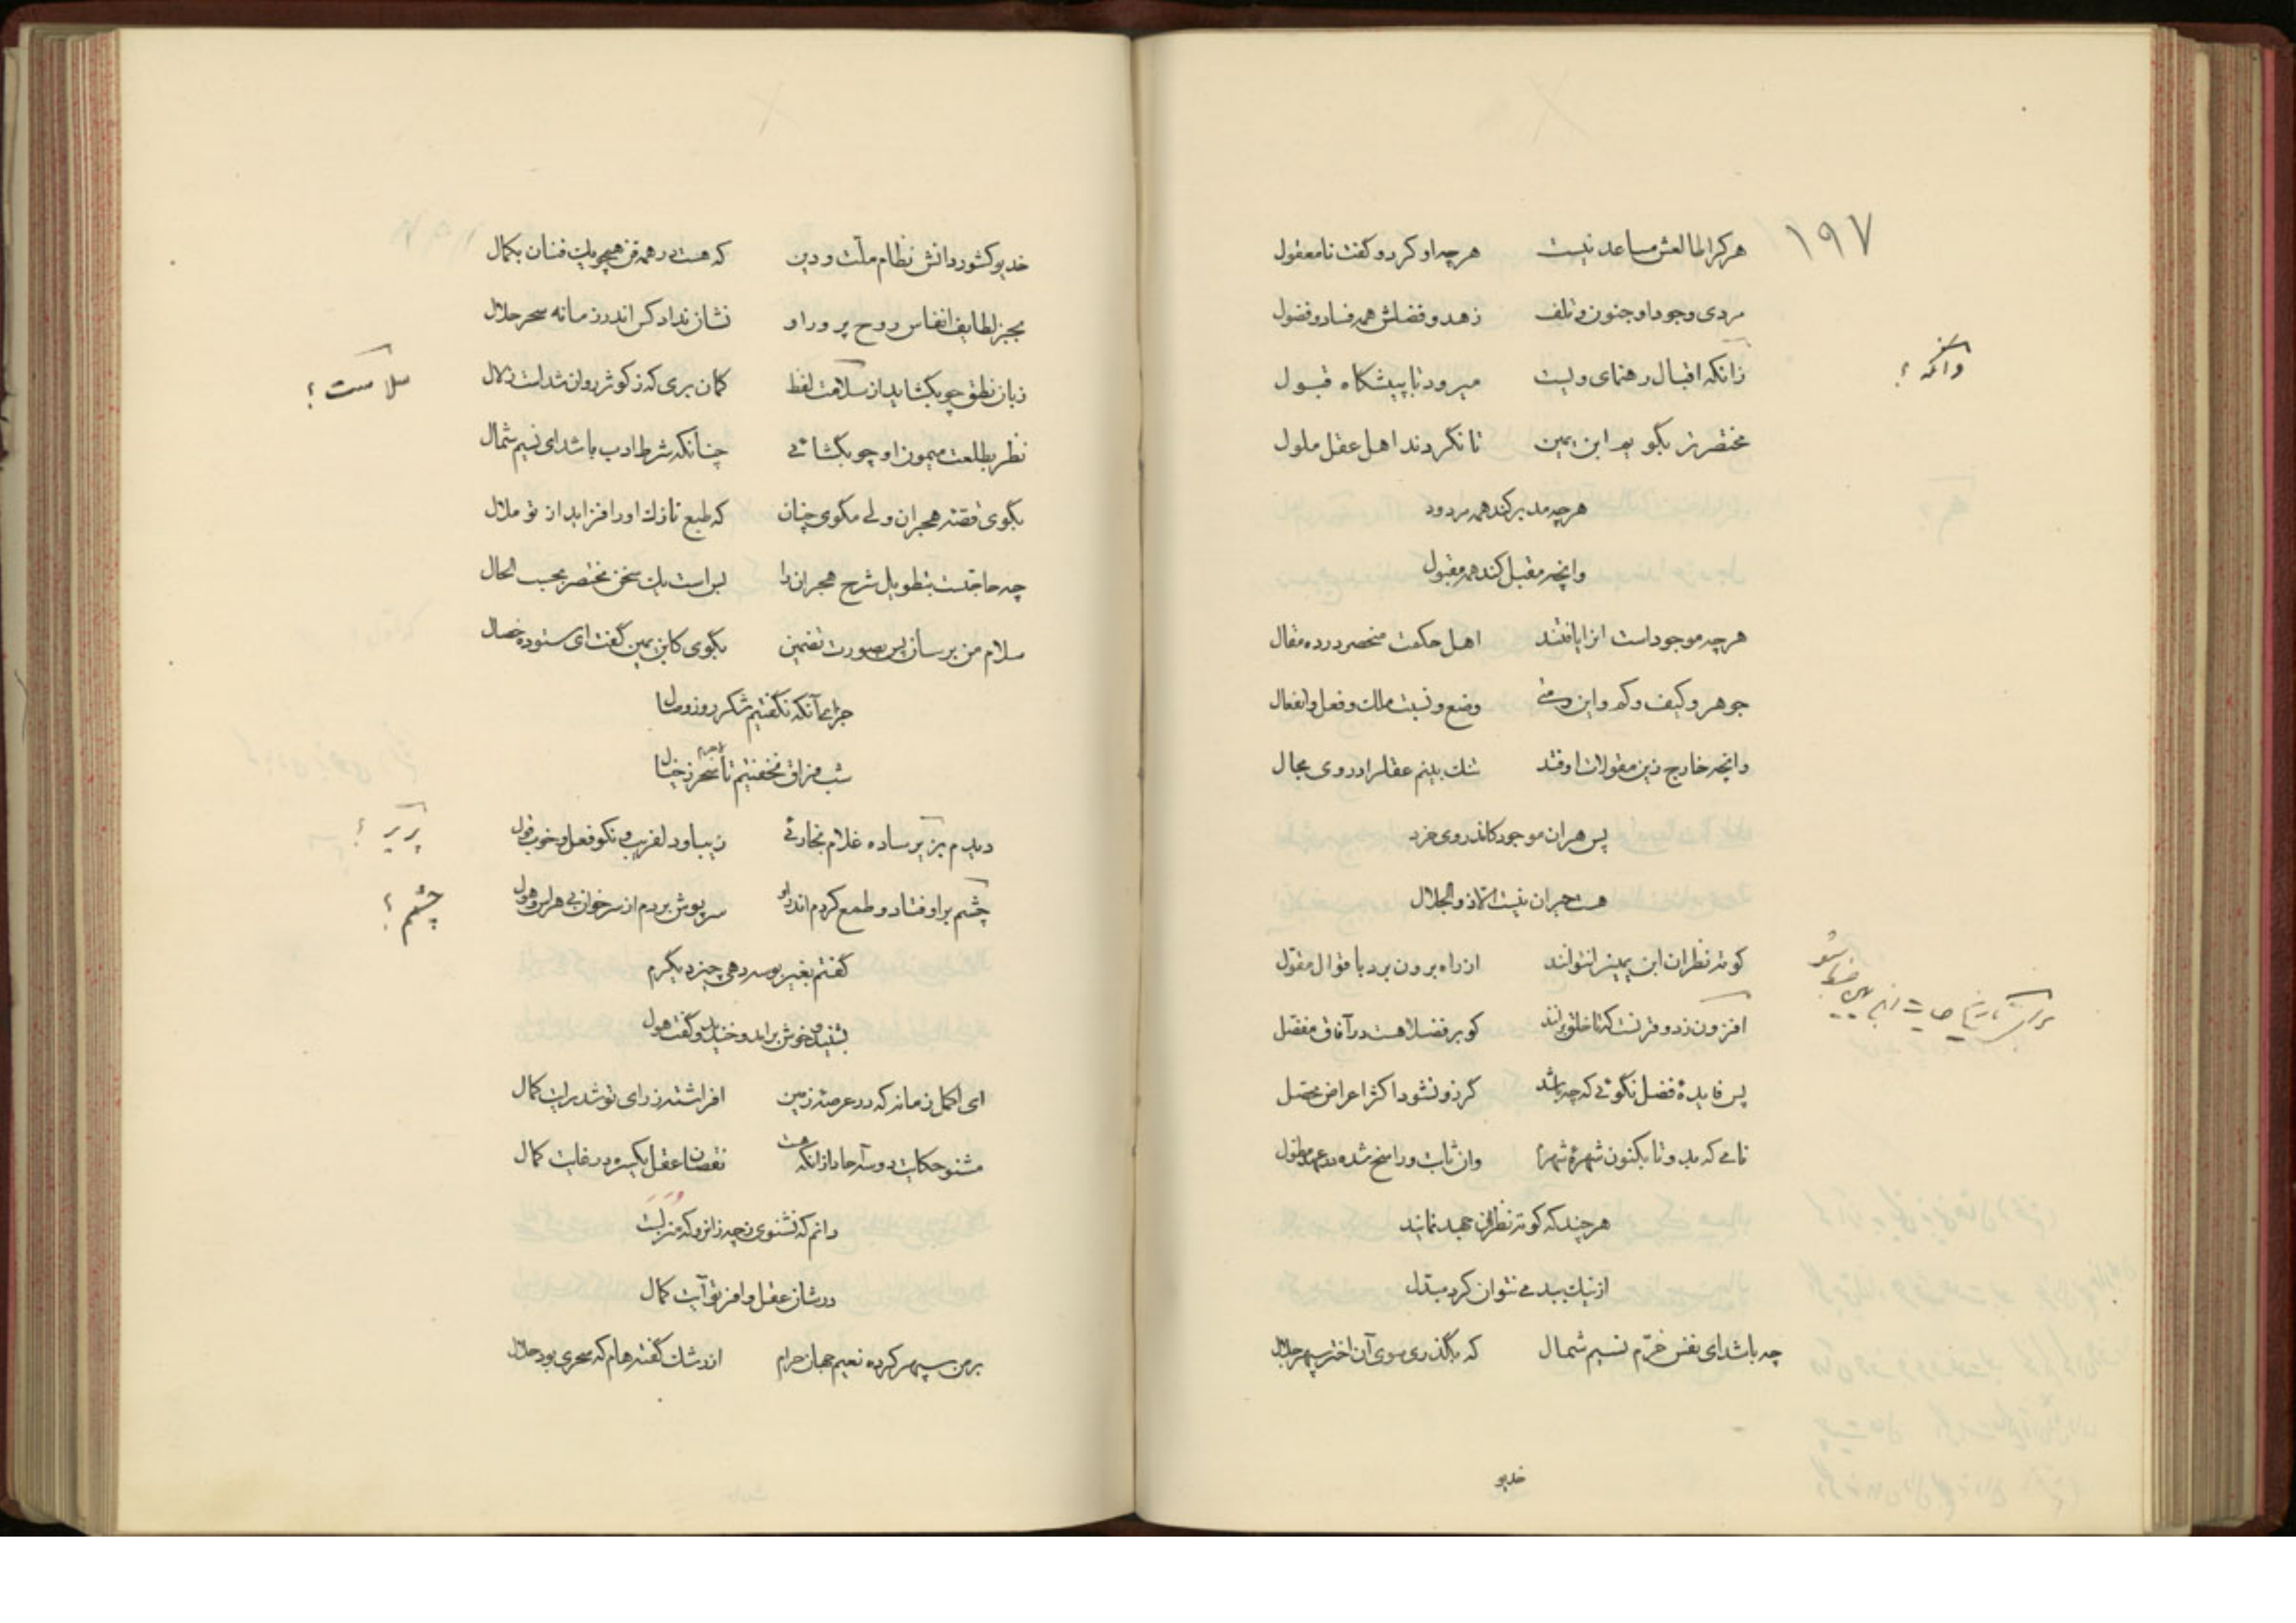 ۱۹۷
هر کرا طالعش مساعد نیست هر چه او کرد و گفت نامعقول
مردی وجود او جنون و تلف زهد و فضلش همه فساد و فضول
زانکه اقبال رهنمای ویست میرود تا پیشگاه قبول
وانکه ؟
مختصرتر بگو یو ابن یمین تا نگردند اهل عقل ملول
هر چه مدبر کند همه مردود
وانچه مقبل کند همه مقبول
هر چه موجود است انرا یافتند اهل حکمت منحصر در ده مقال
جوهر و کیف و کم و این و متی وضع و نسبت ملک و فعل و انفعال
وانچه خارج زین مقولات اوفتد شک بینم عقلرا در وی مجال
پس هر ان موجود کاندر وی خرد
هست حیران نیست الا ذوالجلال
کوته نظران ابن یمینرا نتوانند از راه برون برد با قوال مقول
افزون ز دو قرنست که تا خلق برانند کو بر فضلا هست در آفاق مفضل
پس فایدهٔ فضل نگوئی که چه باشد گر زو نشود اکثر اعراض محصل
نامی که بد و تا بکنون شهرهٔ شهر وان ثابت و راسخ شده در عهد
هر چند که کوته نظران جهد نمایند
از نیک ببد می نتوان کرد مبدل
چه باشد ای نفس خرم نسیم شمال که بگذری سوی آن اختر سپهر جلال
خدیو
خدیو کشور دانش نظام ملت و دین که هست در همه فن همچو یک فنان بکمال
بجز لطایف انفاس روح پرور او نشان نداد کس اندر زمانه سحر حلال
زبان نطق چو بگشاید از سلامت لفظ گمان بری که ز کوثر روان شدست زلال
سلاست ؟
نظر بطلعت میمون او چو بگشائی چنانکه شرط ادب باشد ای نسیم شمال
بگوی قصه هجران ولی مگوی چنان که طبع نازک او را فزاید از تو ملال
چه حاجتست بتطویل شرح هجران را بس است یک سخن مختصر بحسب الحال
سلام من برسان پس بصورت تضمین بگوی کابن یمین گفت ای ستوده خصال
جزای آنکه نگفتیم شکر روز وصال
شب فراق نخفتیم تا سحر ز خیال
دیدم بزیر ساده غلام نجارئی زیبا و دلفریب و نکو فعل و خوب قول
پریر ؟
چشم بر اوفتاد و طمع کردم اندر او سرپوش بردم از سر خوان بی هراس و هول
چشمم ؟
گفتم بغیر بوسه دهی چیز دیگرم
بشنید و خوش بر اید و خندید و گفت هول
ای اکمل زمانه که در عرصه زمین افراشته ز رای تو شد رایت کمال
مشنو حکایت دو سه جاهل ازانکه هست نقصان عقل یکسره در غایت کمال
دانم که نشنوی ز چه زانرو که منزلست
در شان عقل وافر تو آیت کمال
بر من سپهر کرده نعیم جهان حرام از رشک گفته هام که سحری بود حلال